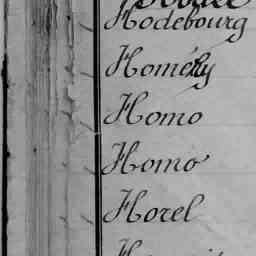 Hodebourg
Homéry
Homo
Homo
Horel